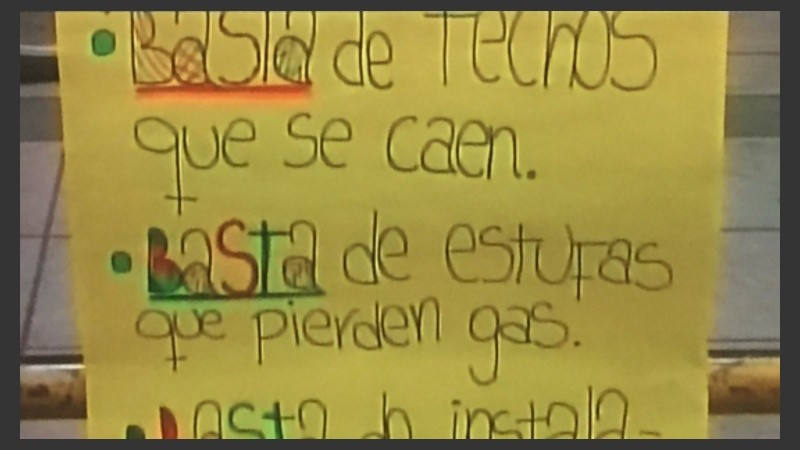 • Basta de Techos
que se caen.
• Basta de estufas
que pierden gas.
• Basta de instala-